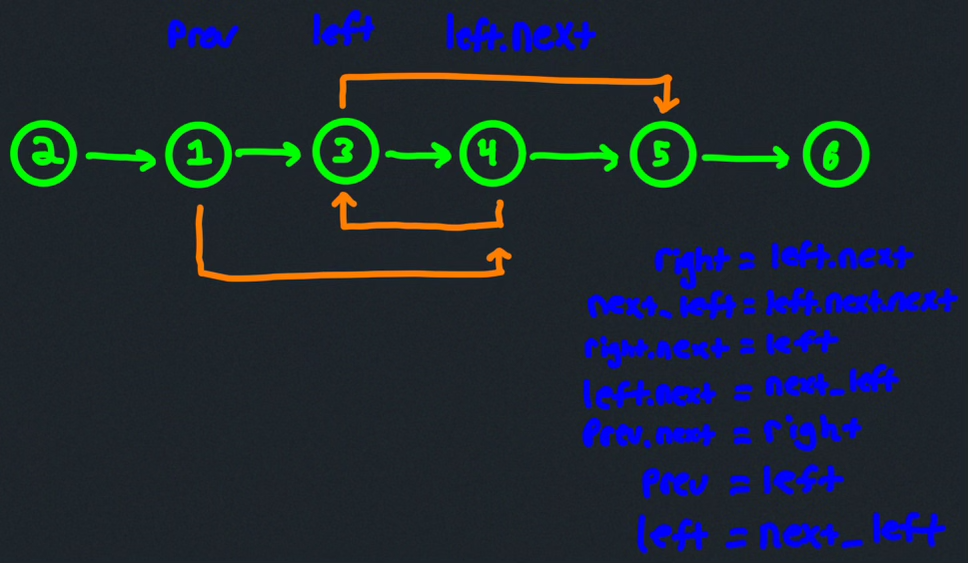 Prev left left.next
2 1 3 4 5 6
right = left.next
next_left = left.next.next
right.next = left
left.next = next_left
Prev.next = right
Prev = left
left = next_left